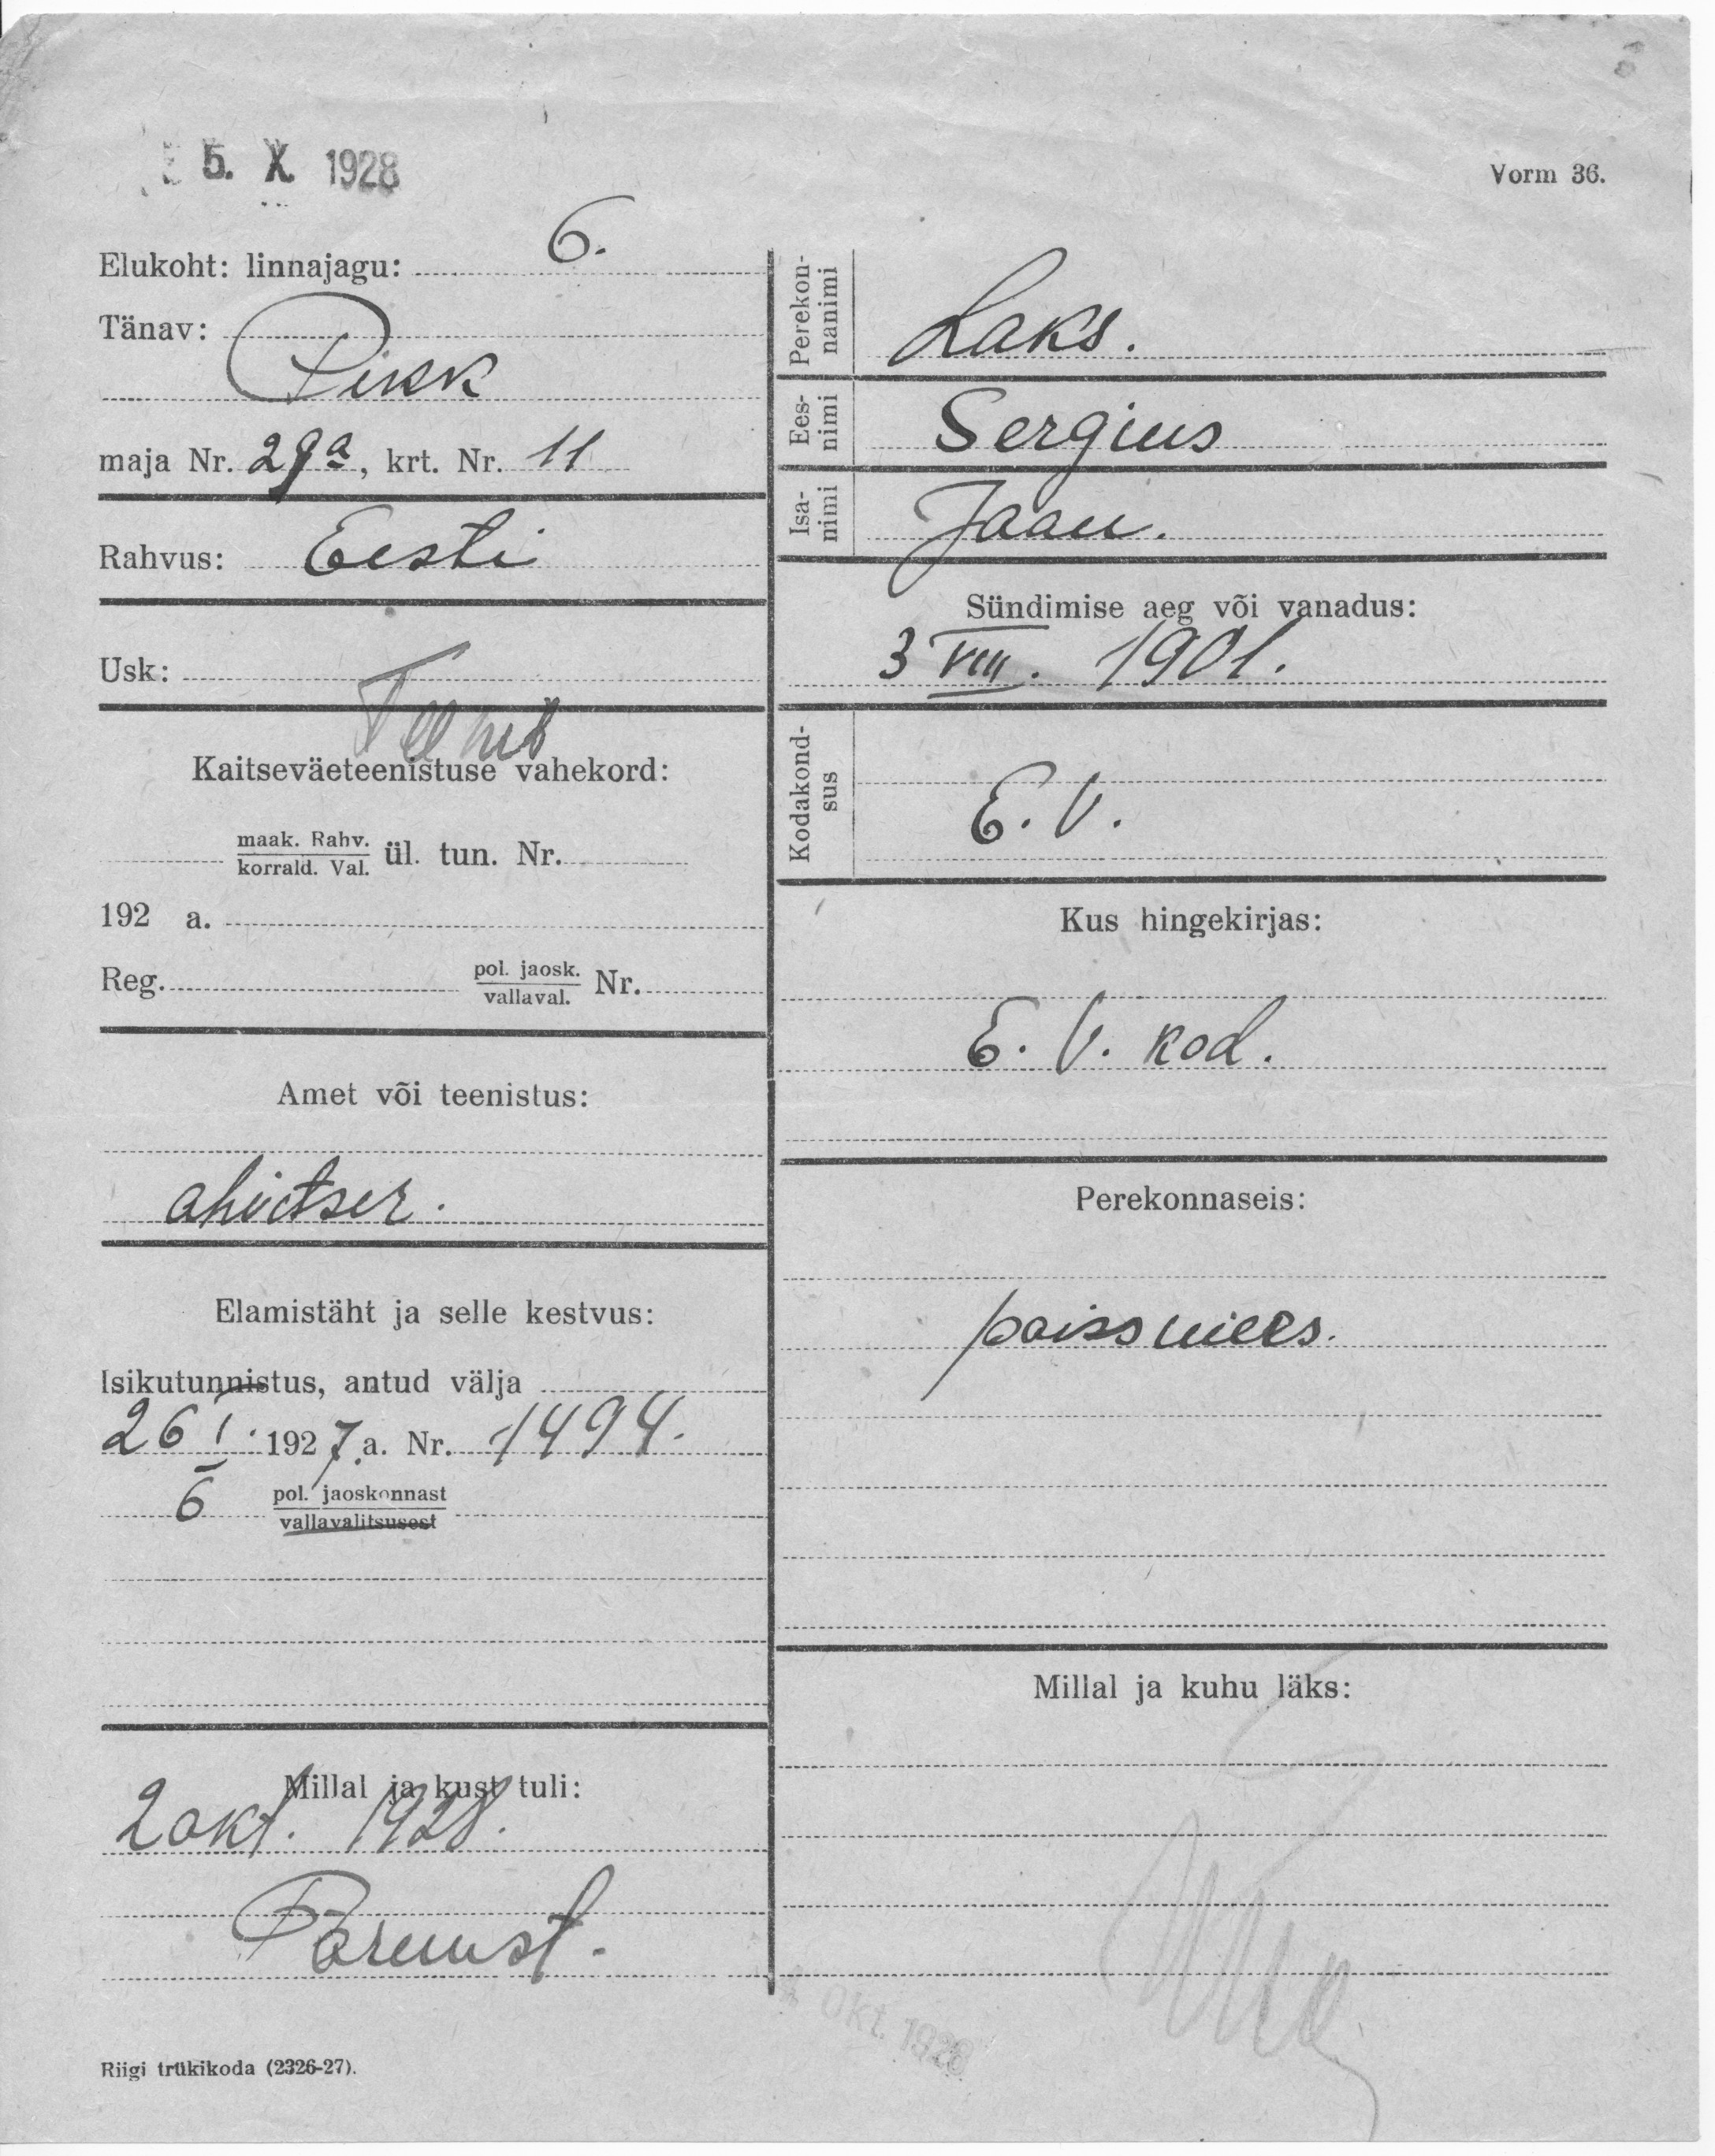 5. X 1928
Vorm 36.
Elukoht: linnajagu: 6.
Tänav:
Pikk
maja Nr. 29a, krt. Nr. 11
Rahvus: Eesti
Usk:
Teenib
Kaitseväeteenistuse vahekord:
maak. Rahv.
korrald. Val.
ül. tun. Nr.
192 a.
Reg. pol. jaosk.
vallaval. Nr.
Amet või teenistus:
ohvitser.
Elamistäht ja selle kestvus:
Isikutunnistus, antud välja
26 I. 1927 a. Nr. 1494.
6 pol. jaoskonnast
vallavalitsusest
Millal ja kust tuli:
2 okt. 1928.
Pärnust.
Riigi trükikoda (2326-27).
Perekon-
nanimi
Laks.
Ees-
nimi
Sergius
Isa-
nimi
Jaan.
Sündimise aeg või vanadus:
3 VIII. 1901.
Kodakond-
sus
E. V.
Kus hingekirjas:
E. V. kod.
Perekonnaseis:
poissmees.
Millal ja kuhu läks:
Okt. 1928